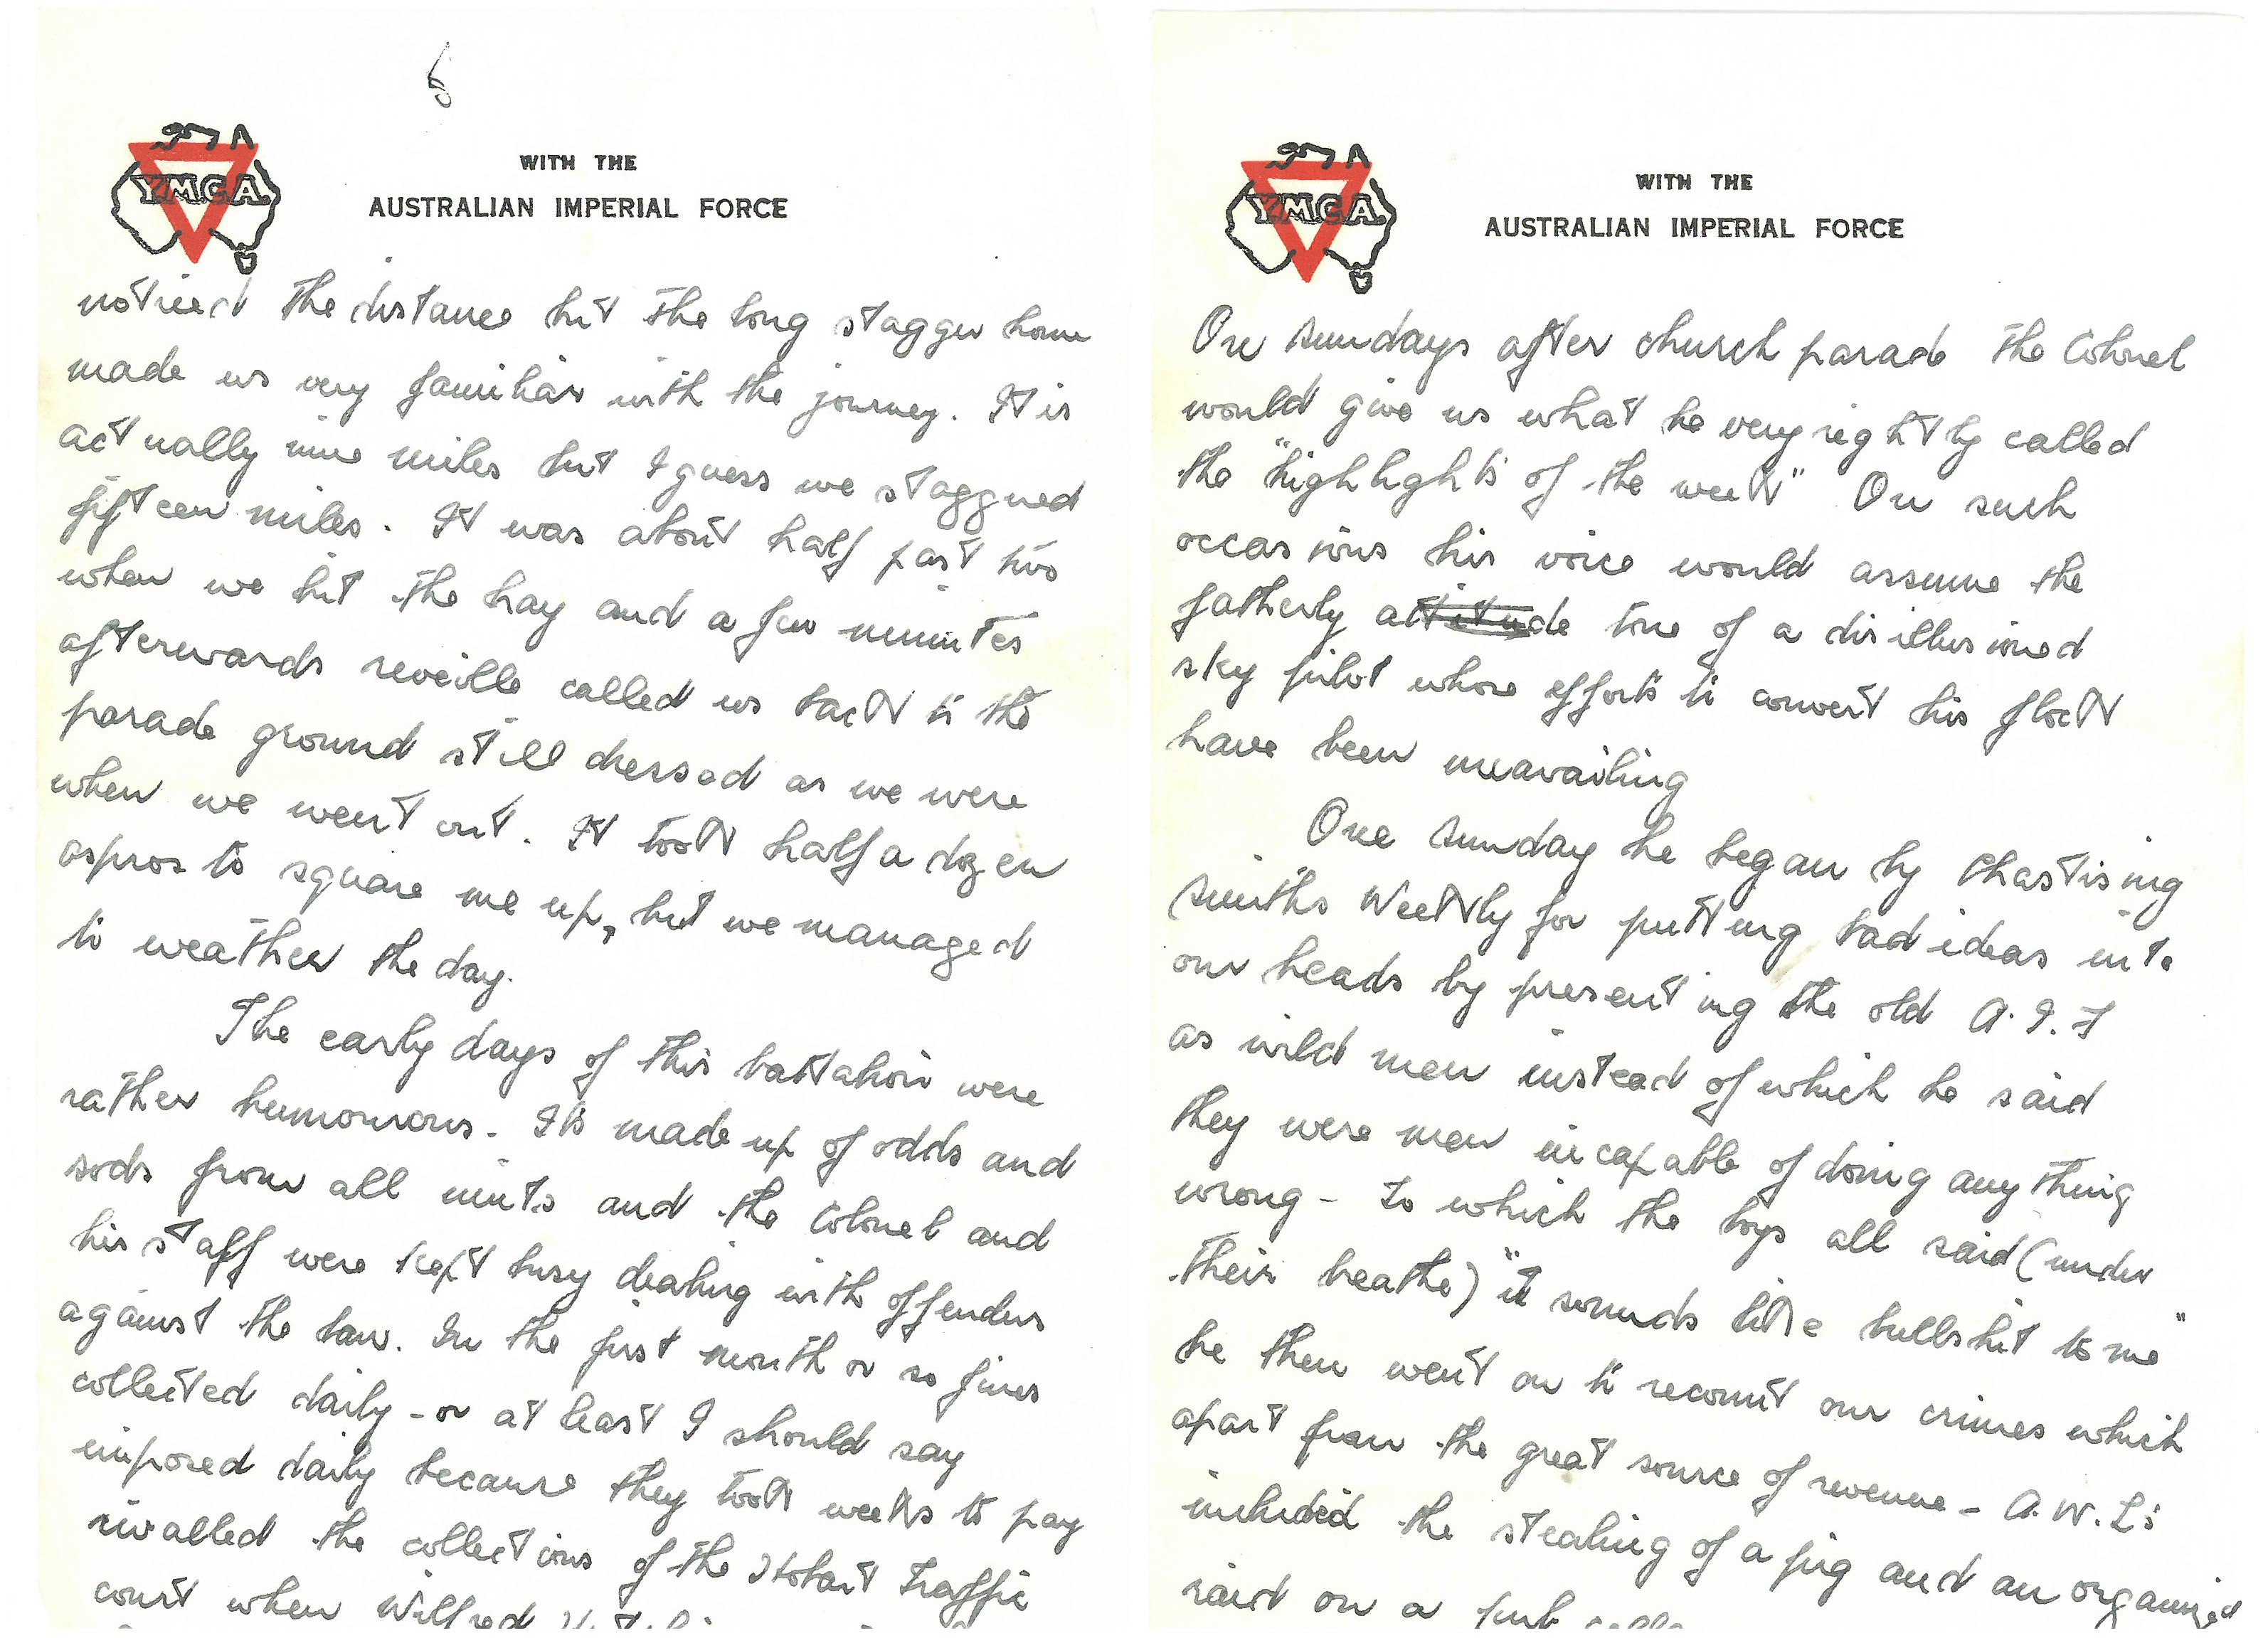 6
Y.M.C.A.
WITH THE
AUSTRALIAN IMPERIAL FORCE
noticed the distance but the long stagger home
made us very familiar with the journey. It is
actually nine miles but I guess we staggered
fifteen miles. It was about half past two
when we hit the hay and a few minutes
afterwards reveille called us back to the
parade ground still dressed as we were
when we went out. It took half a dozen
aspros to square me up, but we managed
to weather the day.
The early days of this battalion were
rather humourous. Its made up of odds and
sods from all units and the Colonel and
his staff were kept busy dealing with offenders
against the law. In the first month or so fines
collected daily - or at least I should say
imposed daily because they took weeks to pay
rivalled the collections of the Hobart Traffic
court when Wilfred
Y.M.C.A.
WITH THE
AUSTRALIAN IMPERIAL FORCE
On Sundays after church parade the Colonel
would give us what he very rightly called
the "highlights of the week" On such
occasions his voice would assume the
fatherly attitude tone of a disillusioned
sky pilot whose efforts to convert his flock
have been unavailing
One Sunday he began by chastising
Smiths Weekly for putting bad ideas into
our heads by presenting the old A.I.F
as wild men instead of which he said
they were men incapable of doing anything
wrong - to which the boys all said (under
their breathe) "it sounds like bullshit to me"
he then went on to recount our crimes which
apart from the great source of revenue - A.W.L's
included the stealing of a pig and an organized
raid on a pub